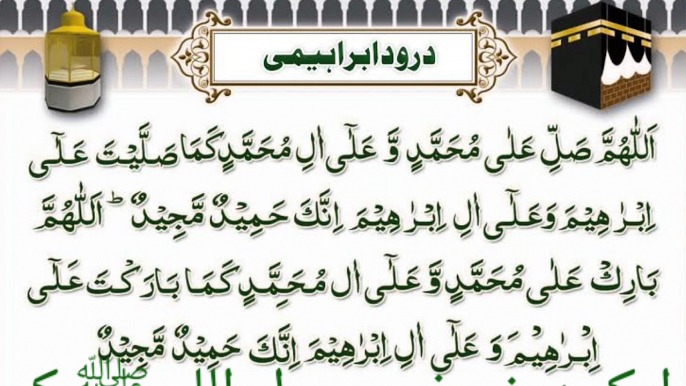 درود ابراہیمی
اَللّٰهُمَّ صَلِّ عَلٰی مُحَمَّدٍ وَّ عَلٰٓی اٰلِ مُحَمَّدٍ کَمَا صَلَّیْتَ عَلٰٓی
اِبْرٰهِیْمَ وَعَلٰٓی اٰلِ اِبْرٰهِیْمَ اِنَّکَ حَمِیْدٌ مَّجِیْدٌ ؕ اَللّٰهُمَّ
بَارِکْ عَلٰی مُحَمَّدٍ وَّعَلٰٓی اٰلِ مُحَمَّدٍ کَمَا بَارَکْتَ عَلٰٓی
اِبْرٰهِیْمَ وَ عَلٰٓی اٰلِ اِبْرٰهِیْمَ اِنَّکَ حَمِیْدٌ مَّجِیْدٌ
ﷺ